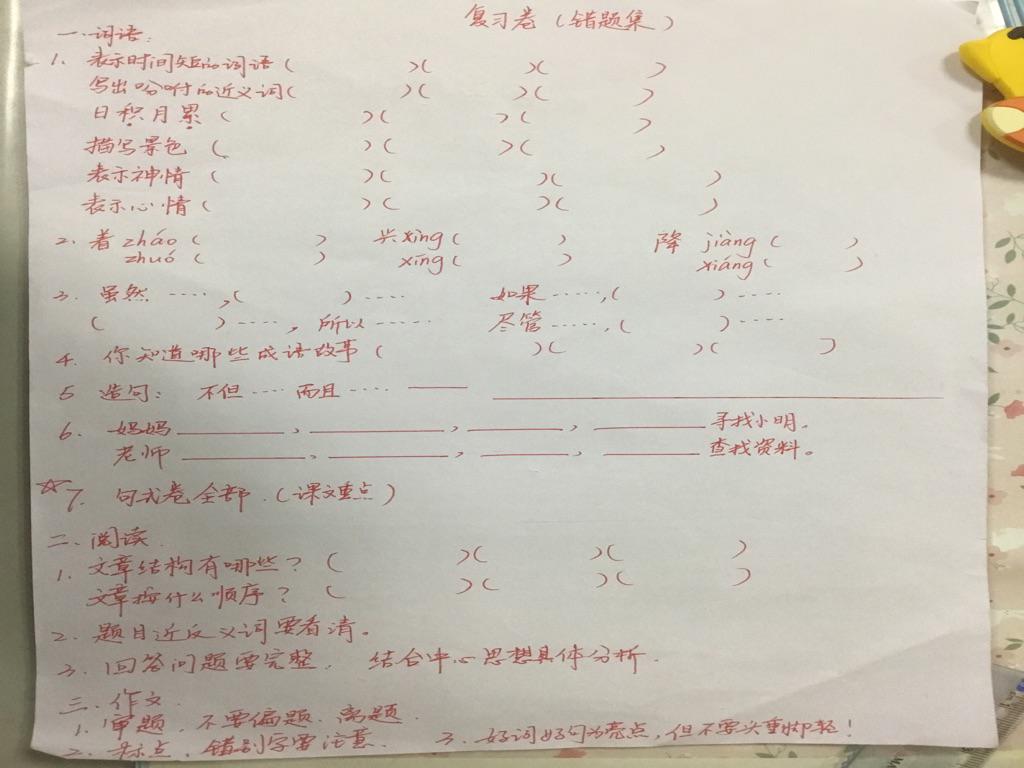 复习卷（错题集）
一.词语:
1. 表示时间短的词语(　　)(　　)(　　)
写出吩咐的近义词(　　)(　　)(　　)
日积月累(　　)(　　)(　　)
描写景色(　　)(　　)(　　)
表示神情(　　)(　　)(　　)
表示心情(　　)(　　)(　　)
2. 着 zháo(　　) 兴 xìng(　　) 降 jiàng(　　)
zhuó(　　) xīng(　　) xiáng(　　)
3. 虽然……,(　　)…… 如果……,(　　)……
(　　)……,所以…… 尽管……,(　　)……
4. 你知道哪些成语故事(　　)(　　)(　　)
5 造句: 不但……而且…… ____ ____________
6. 妈妈______,______,______,______寻找小明。
老师______,______,______,______查找资料。
☆7. 句式卷全部.(课文重点)
二.阅读.
1. 文章结构有哪些?(　　)(　　)(　　)
文章按什么顺序?(　　)(　　)(　　)
2. 题目近反义词要看清。
3. 回答问题要完整, 结合中心思想具体分析.
三.作文.
1. 审题,不要偏题.离题.
2. 标点,错别字要注意. 3. 好词好句为亮点,但不要头重脚轻!